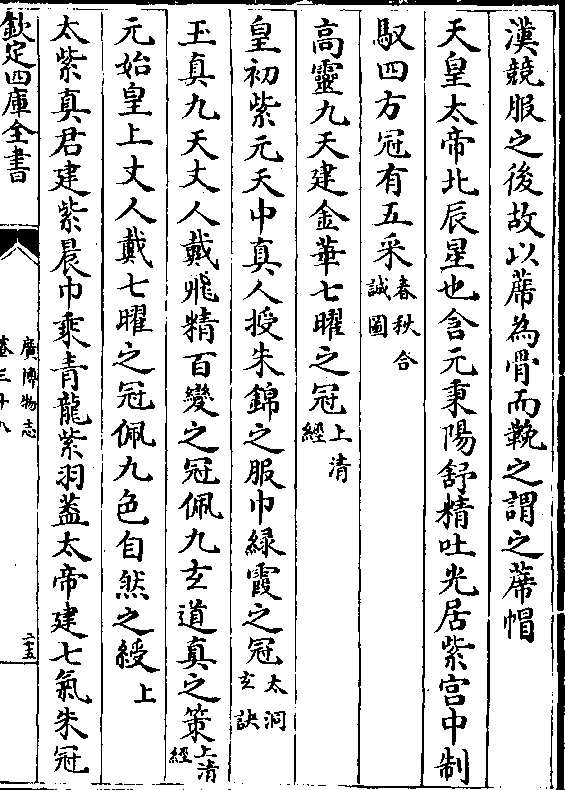 漢競服之後故以蓆為骨而鞔之謂之蓆帽
天皇太帝北辰星也含元秉陽舒精吐光居紫宫中制
馭四方冠有五采春秋合誠圖
高靈九天建金華七曜之冠上清經
皇初紫元天中真人授朱錦之服巾緑霞之冠太洞玄訣
玉真九天丈人戴飛精百變之冠佩九玄道真之策上清經
元始皇上丈人戴七曜之冠佩九色自然之綬上
太紫真君建紫晨巾乘青龍紫羽葢太帝建七氣朱冠
欽定四庫全書
廣博物志
卷三十八
二十五